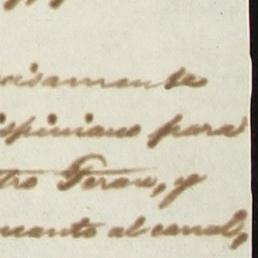 cisamente
ispiniano para
tro Teran, y
uanto al canal,